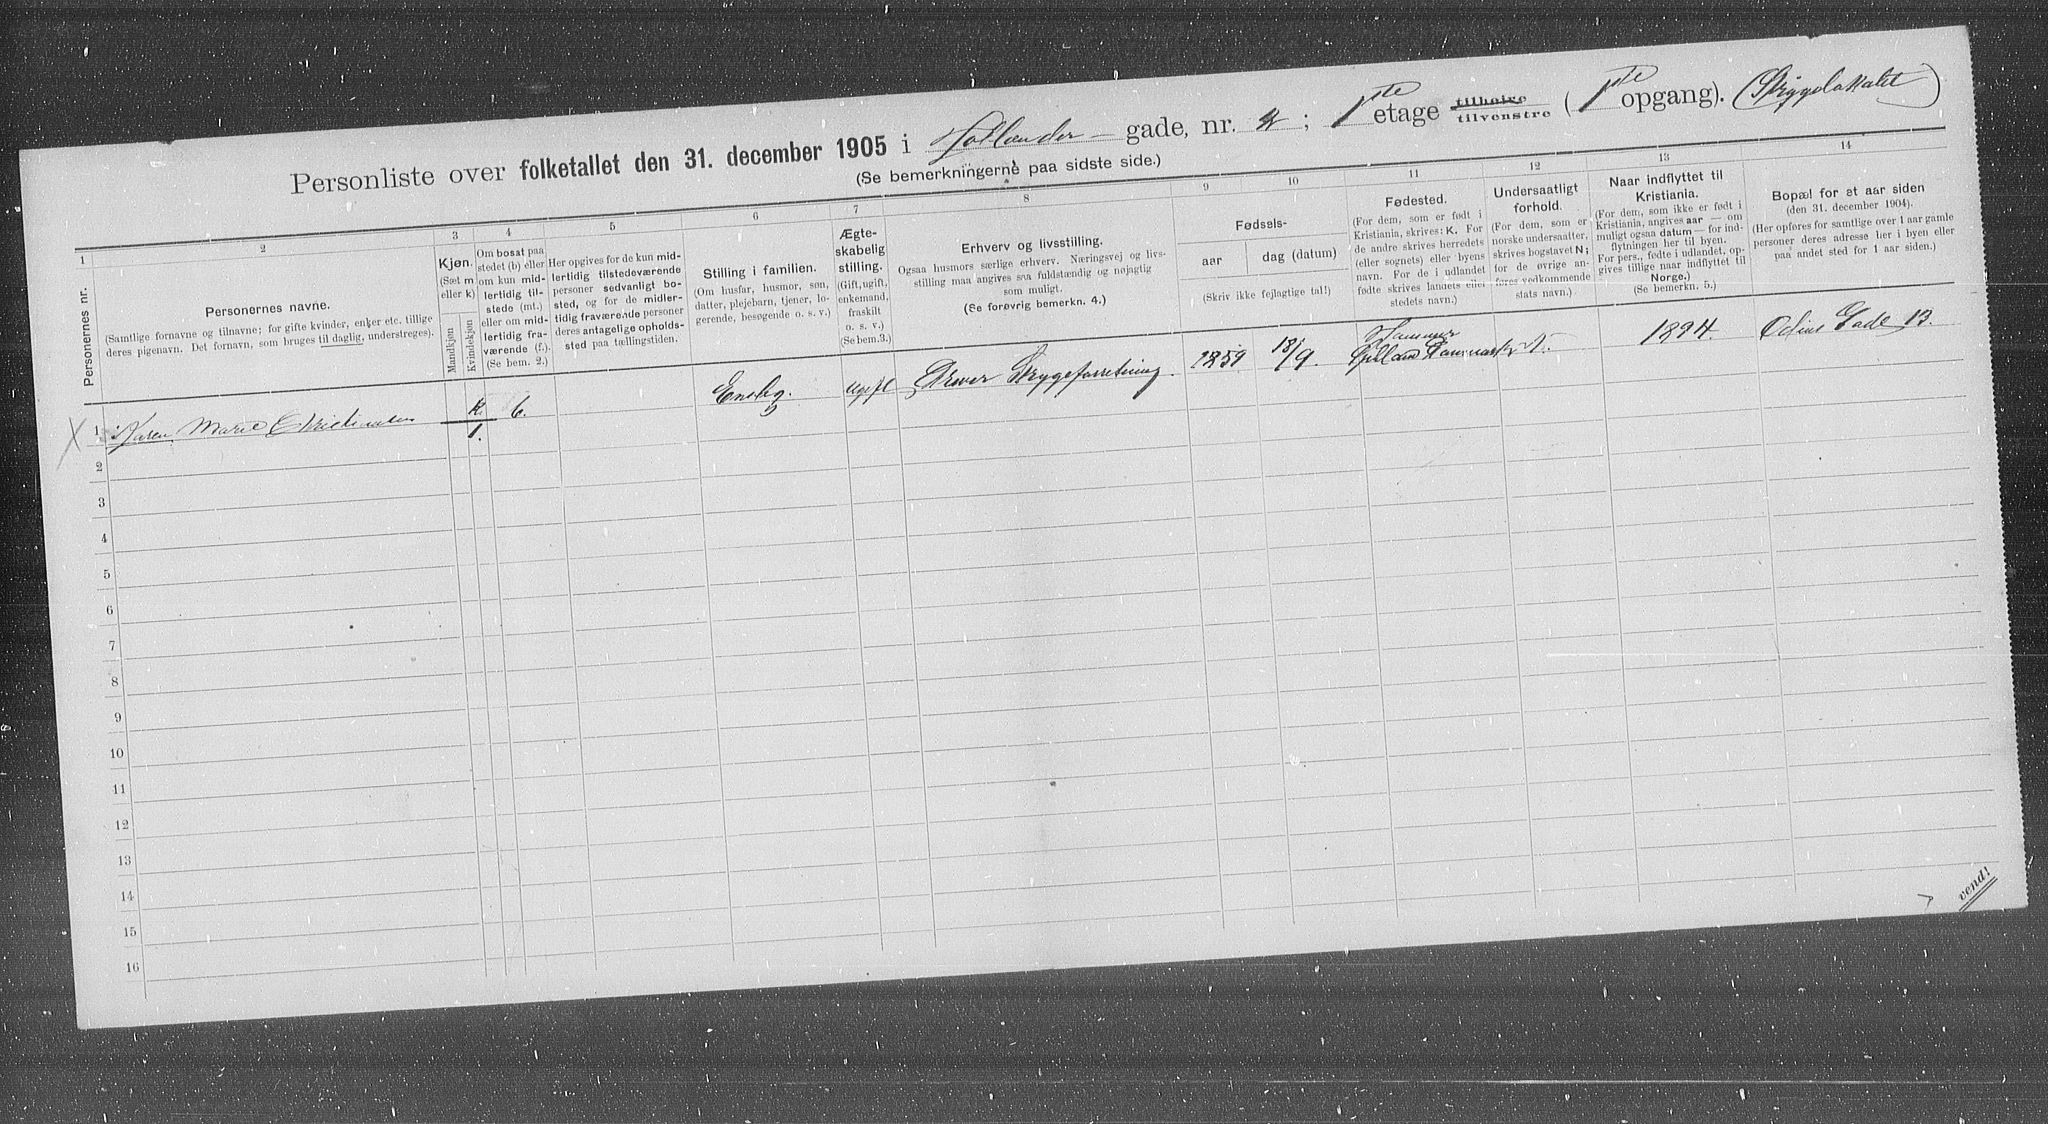 Personliste over folketallet den 31. december 1905 i Hollender- gade, nr. 4; 1ste etage tilhøire tilvenstre (1ste opgang). (Strygelokalet)
(Se bemerkningerne paa sidste side.)
1 2 3 4 5 6 7 8 9 10 11 12 13 14
Personernes nr.
Personernes navne.
(Samtlige fornavne og tilnavne; for gifte kvinder, enker etc. tillige
deres pigenavn. Det fornavn, som bruges til daglig, understreges).
Kjøn.
(Sæt m
eller k)
Mandkjøn
Kvindekjøn
Om bosat paa
stedet (b) eller
om kun mid-
lertidig til-
stede (mt.)
eller om mid-
lertidig fra-
værende (f.).
(Se bem. 2.)
Her opgives for de kun mid-
lertidig tilstedeværende
personer sedvanligt bo-
sted, og for de midler-
tidig fraværende personer
deres antagelige opholds-
sted paa tællingstiden.
Stilling i familien.
(Om husfar, husmor, søn,
datter, plejebarn, tjener, lo-
gerende, besøgende o. s. v.)
Ægte-
skabelig
stilling.
(Gift, ugift,
enkemand,
fraskilt
o. s. v.)
(Se bem. 3.)
Erhverv og livsstilling.
Ogsaa husmors særlige erhverv. Næringsvej og livs-
stilling maa angives saa fuldstændig og nøjagtig
som muligt.
(Se forøvrig bemerkn. 4.)
Fødsels-
aar dag (datum)
(Skriv ikke fejlagtige tal!)
Fødested.
(For dem, som er født i
Kristiania, skrives: K. For
de andre skrives herredets
(eller sognets) eller byens
navn. For de i udlandet
fødte skrives landets eller
stedets navn.)
Undersaatligt
forhold.
(For dem, som er
norske undersaatter,
skrives bogstavet N;
for de øvrige an-
føres vedkommende
stats navn.)
Naar indflyttet til
Kristiania.
(For dem, som ikke er født i
Kristiania, angives aar — om
muligt ogsaa datum — for ind-
flytningen her til byen.
For pers., fødte i udlandet, op-
gives tillige naar indflyttet til
Norge.)
(Se bemerkn. 5.)
Bopæl for et aar siden
(den 31. december 1904).
(Her opføres for samtlige over 1 aar gamle
personer deres adresse her i byen eller
paa andet sted for 1 aar siden.)
X 1 Karen Marie Christensen k. 1. b. Enslig. Ugift Driver Strygeforretning. 1859 18/9. Hammer Jylland Danmark N. 1894. Odins Gade 13.
2
3
4
5
6
7
8
9
10
11
12
13
14
15
16
vend!